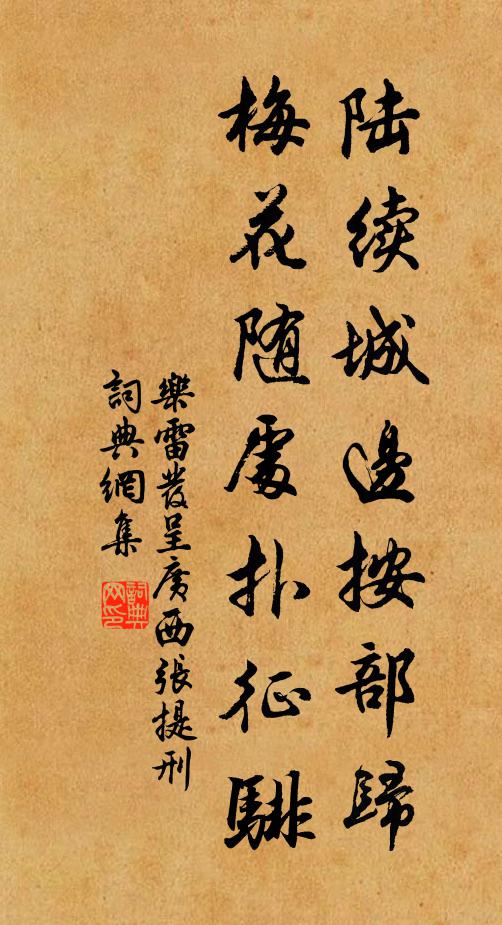 陆续城邊按部歸
梅花随處扑征騑
樂雷發呈廣西張提刑
詞典網集
詞典網印